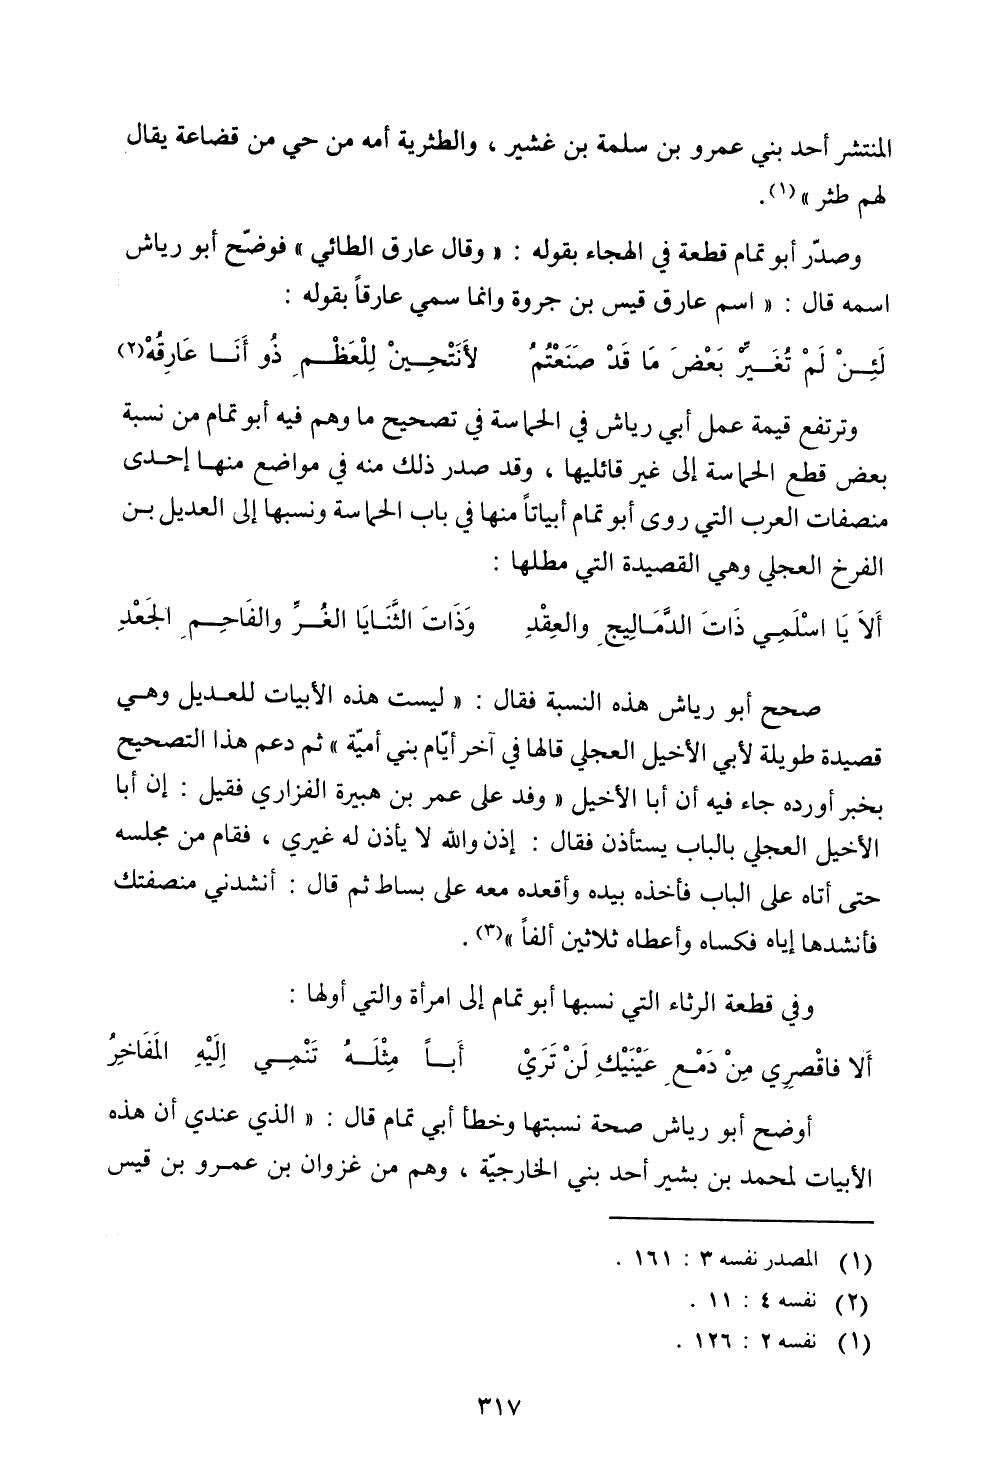 المنتشر أحد بني عمرو بن سلمة بن غشير ، والطثرية أمه من حي من قضاعة يقال
لهم طثر »(١).
وصدّر أبو تمام قطعة في الهجاء بقوله : « وقال عارق الطائي » فوضّح أبو رياش
اسمه قال : « اسم عارق قيس بن جروة وانما سمي عارقاً بقوله :
لَئِنْ لَمْ تُغَيِّرْ بَعْضَ مَا قَدْ صَنَعْتُمُ لأَنْتْحِيَنْ لِلْعَظْمِ ذُو أَنَا عَارِقُهْ(٢)
وترتفع قيمة عمل أبي رياش في الحماسة في تصحيح ما وهم فيه أبو تمام من نسبة
بعض قطع الحماسة إلى غير قائليها ، وقد صدر ذلك منه في مواضع منها إحدى
منصفات العرب التي روى أبو تمام أبياتاً منها في باب الحماسة ونسبها إلى العديل بن
الفرخ العجلي وهي القصيدة التي مطلها :
أَلاَ يَا اسْلَمِي ذَاتَ الدَّمَالِيجِ والعِقْدِ وَذَاتَ الثَّنَايَا الغُرِّ والفَاحِمِ الجَعْدِ
صحح أبو رياش هذه النسبة فقال : « ليست هذه الأبيات للعديل وهي
قصيدة طويلة لأبي الأخيل العجلي قالها في آخر أيّام بني أميّة » ثم دعم هذا التصحيح
بخبر أورده جاء فيه أن أبا الأخيل « وفد على عمر بن هبيرة الفزاري فقيل : إن أبا
الأخيل العجلي بالباب يستأذن فقال : إذن والله لا يأذن له غيري ، فقام من مجلسه
حتى أتاه على الباب فأخذه بيده وأقعده معه على بساط ثم قال : أنشدني منصفتك
فأنشدها إياه فكساه وأعطاه ثلاثين ألفاً »(٣) .
وفي قطعة الرثاء التي نسبها أبو تمام إلى امرأة والتي أولها :
أَلا فاقْصِرِي مِنْ دَمْعِ عَيْنَيْكِ لَنْ تَرَيْ أَباً مِثْلَهُ تَنْمِي اِلَيْهِ المَفَاخِرُ
أوضح أبو رياش صحة نسبتها وخطأ أبي تمام قال : « الذي عندي أن هذه
الأبيات لمحمد بن بشير أحد بني الخارجيّة ، وهم من غزوان بن عمرو بن قيس
(١) المصدر نفسه ٣ : ١٦١ .
(٢) نفسه ٤ : ١١ .
(١) نفسه ٢ : ١٢٦ .
٣١٧